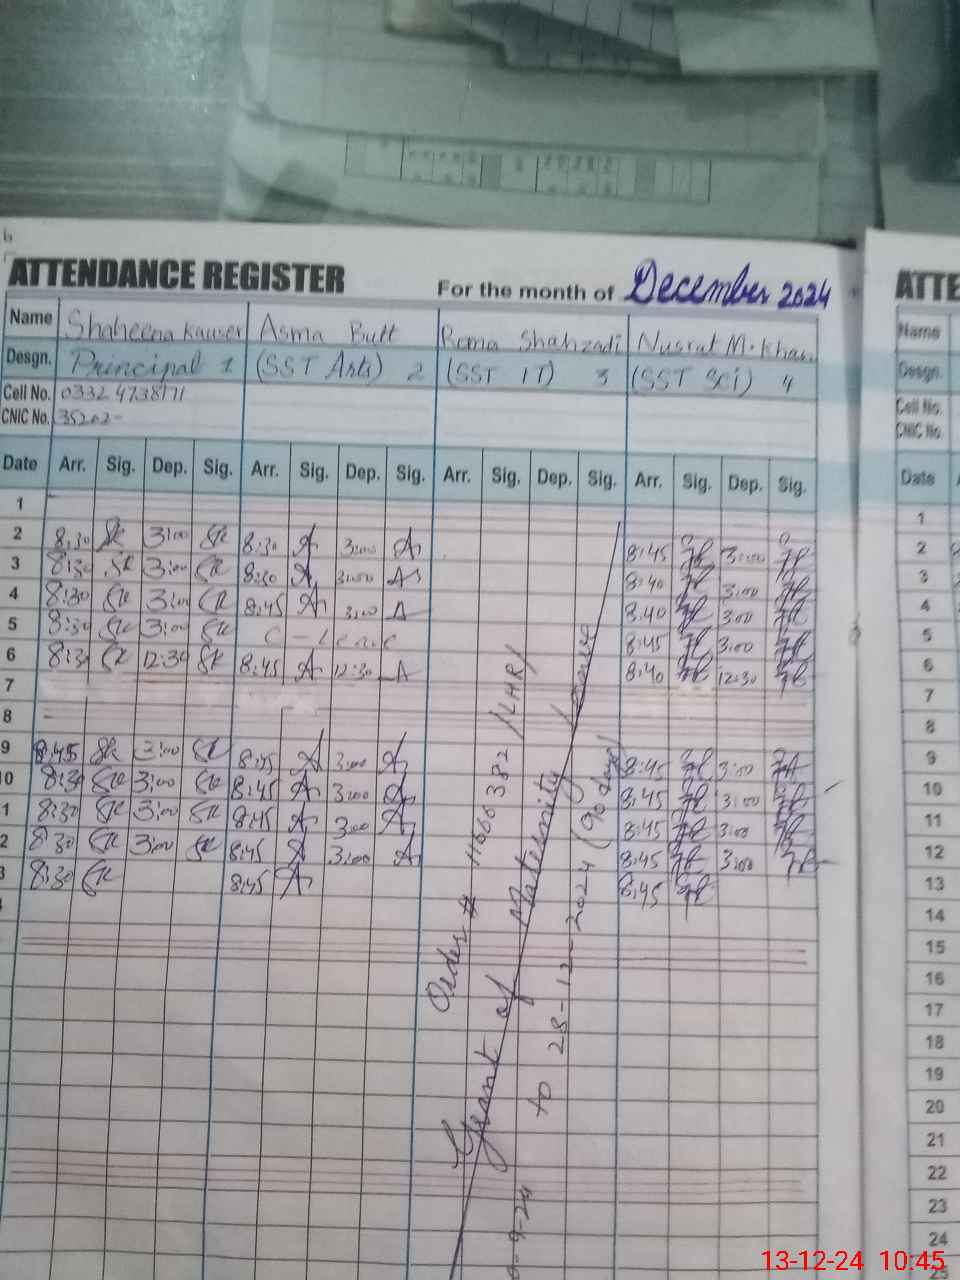 ATTENDANCE REGISTER For the month of December 2024 ATTE
Name Shaheena Kauser Asma Butt Roma Shahzadi Nusrat M. Khan Name
Desgn. Principal 1 (SST Arts) 2 (SST IT) 3 (SST Sci) 4 Desgn.
Cell No. 0332 4738171 Cell No.
CNIC No. 35202- CNIC No.
Date Arr. Sig. Dep. Sig. Arr. Sig. Dep. Sig. Arr. Sig. Dep. Sig. Arr. Sig. Dep. Sig. Date
1 1
2 8:30 SK 3:00 SK 8:30 A 3:00 A 8:45 3:00 2
3 8:30 SK 3:00 SK 8:30 A 3:00 A 8:40 3:00 3
4 8:30 SK 3:00 SK 8:45 A 3:00 A 8:40 3:00 4
5 8:30 SK 3:00 SK C-Leave 8:45 3:00 5
6 8:30 SK 12:30 SK 8:45 A 12:30 A 8:40 12:30 6
7 7
8 8
9 8:45 SK 3:00 SK 8:45 A 3:00 A 8:45 3:00 9
10 8:30 SK 3:00 SK 8:45 A 3:00 A 8:45 3:00 10
1 8:30 SK 3:00 SK 8:45 A 3:00 A 8:45 3:00 11
2 8:30 SK 3:00 SK 8:45 A 3:00 A 8:45 3:00 12
3 8:30 SK 8:45 A 8:45 13
14
15
16
17
18
19
20
21
22
23
24
25
Order # 11666382 /LHR/
Grant of Maternity Leave
-9-24 to 28-12-2024 (90 days)
13-12-24 10:45